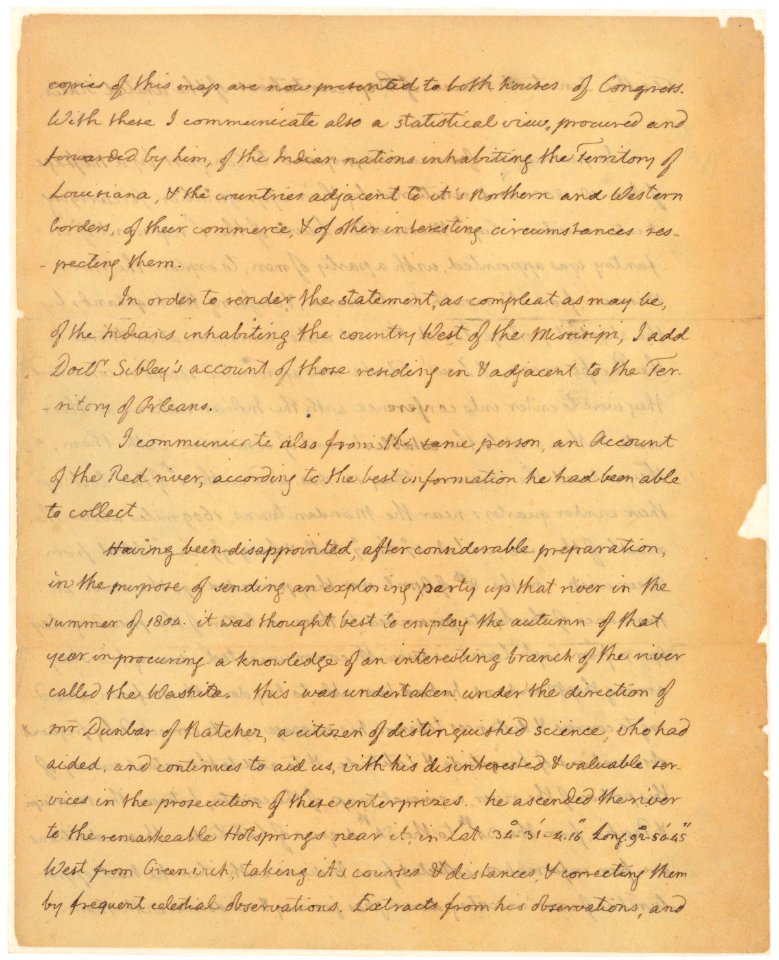 copies of this map are now presented to both houses of Congress.
With these I communicate also a statistical view, procured and
forwarded by him, of the Indian nations inhabiting the Territory of
Louisiana, & the countries adjacent to it's Northern and Western
borders, of their commerce, & of other interesting circumstances res-
-pecting them.
In order to render the statement, as compleat as may be,
of the Indians inhabiting the country West of the Missisipi, I add
Doctr. Sibley's account of those residing in & adjacent to the Ter-
-ritory of Orleans.
I communicate also from the same person, an Account
of the Red river, according to the best information he had been able
to collect
Having been disappointed, after considerable preparation,
in the purpose of sending an exploring party up that river in the
summer of 1804. it was thought best to employ the autumn of that
year in procuring a knowledge of an interesting branch of the river
called the Washita. this was undertaken under the direction of
mr Dunbar of Natchez, a citizen of distinguished science, who had
aided, and continues to aid us, with his disinterested & valuable ser-
vices in the prosecution of these enterprizes. he ascended the river
to the remarkeable Hotsprings near it, in Lat 34°-31'-4.16" Long. 92°-50'-45"
West from Greenwich, taking it's courses & distances, & correcting them
by frequent celestial observations. Extracts from his observations, and